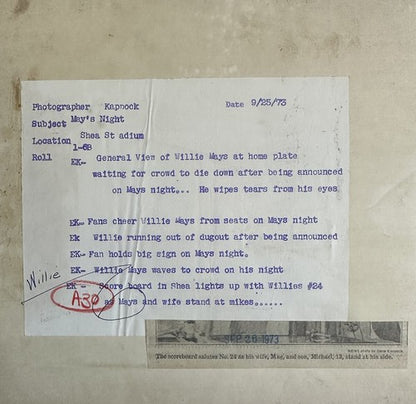 Photographer Kapnock Date 9/25/73
Subject May's Night
Location Shea St adium
Roll 1-6B
EK- General View of Willie Mays at home plate
waiting for crowd to die down after being announced
on Mays night... He wipes tears from his eyes
EK- Fans cheer Willie Mays from seats on Mays night
Ek Willie running out of dugout after being announced
EK- Fan holds big sign on Mays night.
EK- Willie Mays waves to crowd on his night
EK - Score board in Shea lights up with Willies #24
as Mays and wife stand at mikes......
Willie
A30
SEP 26 1973
NEWS photo by Gene Kappock
The scoreboard salutes No. 24 as his wife, Mae, and son, Michael, 13, stand at his side.